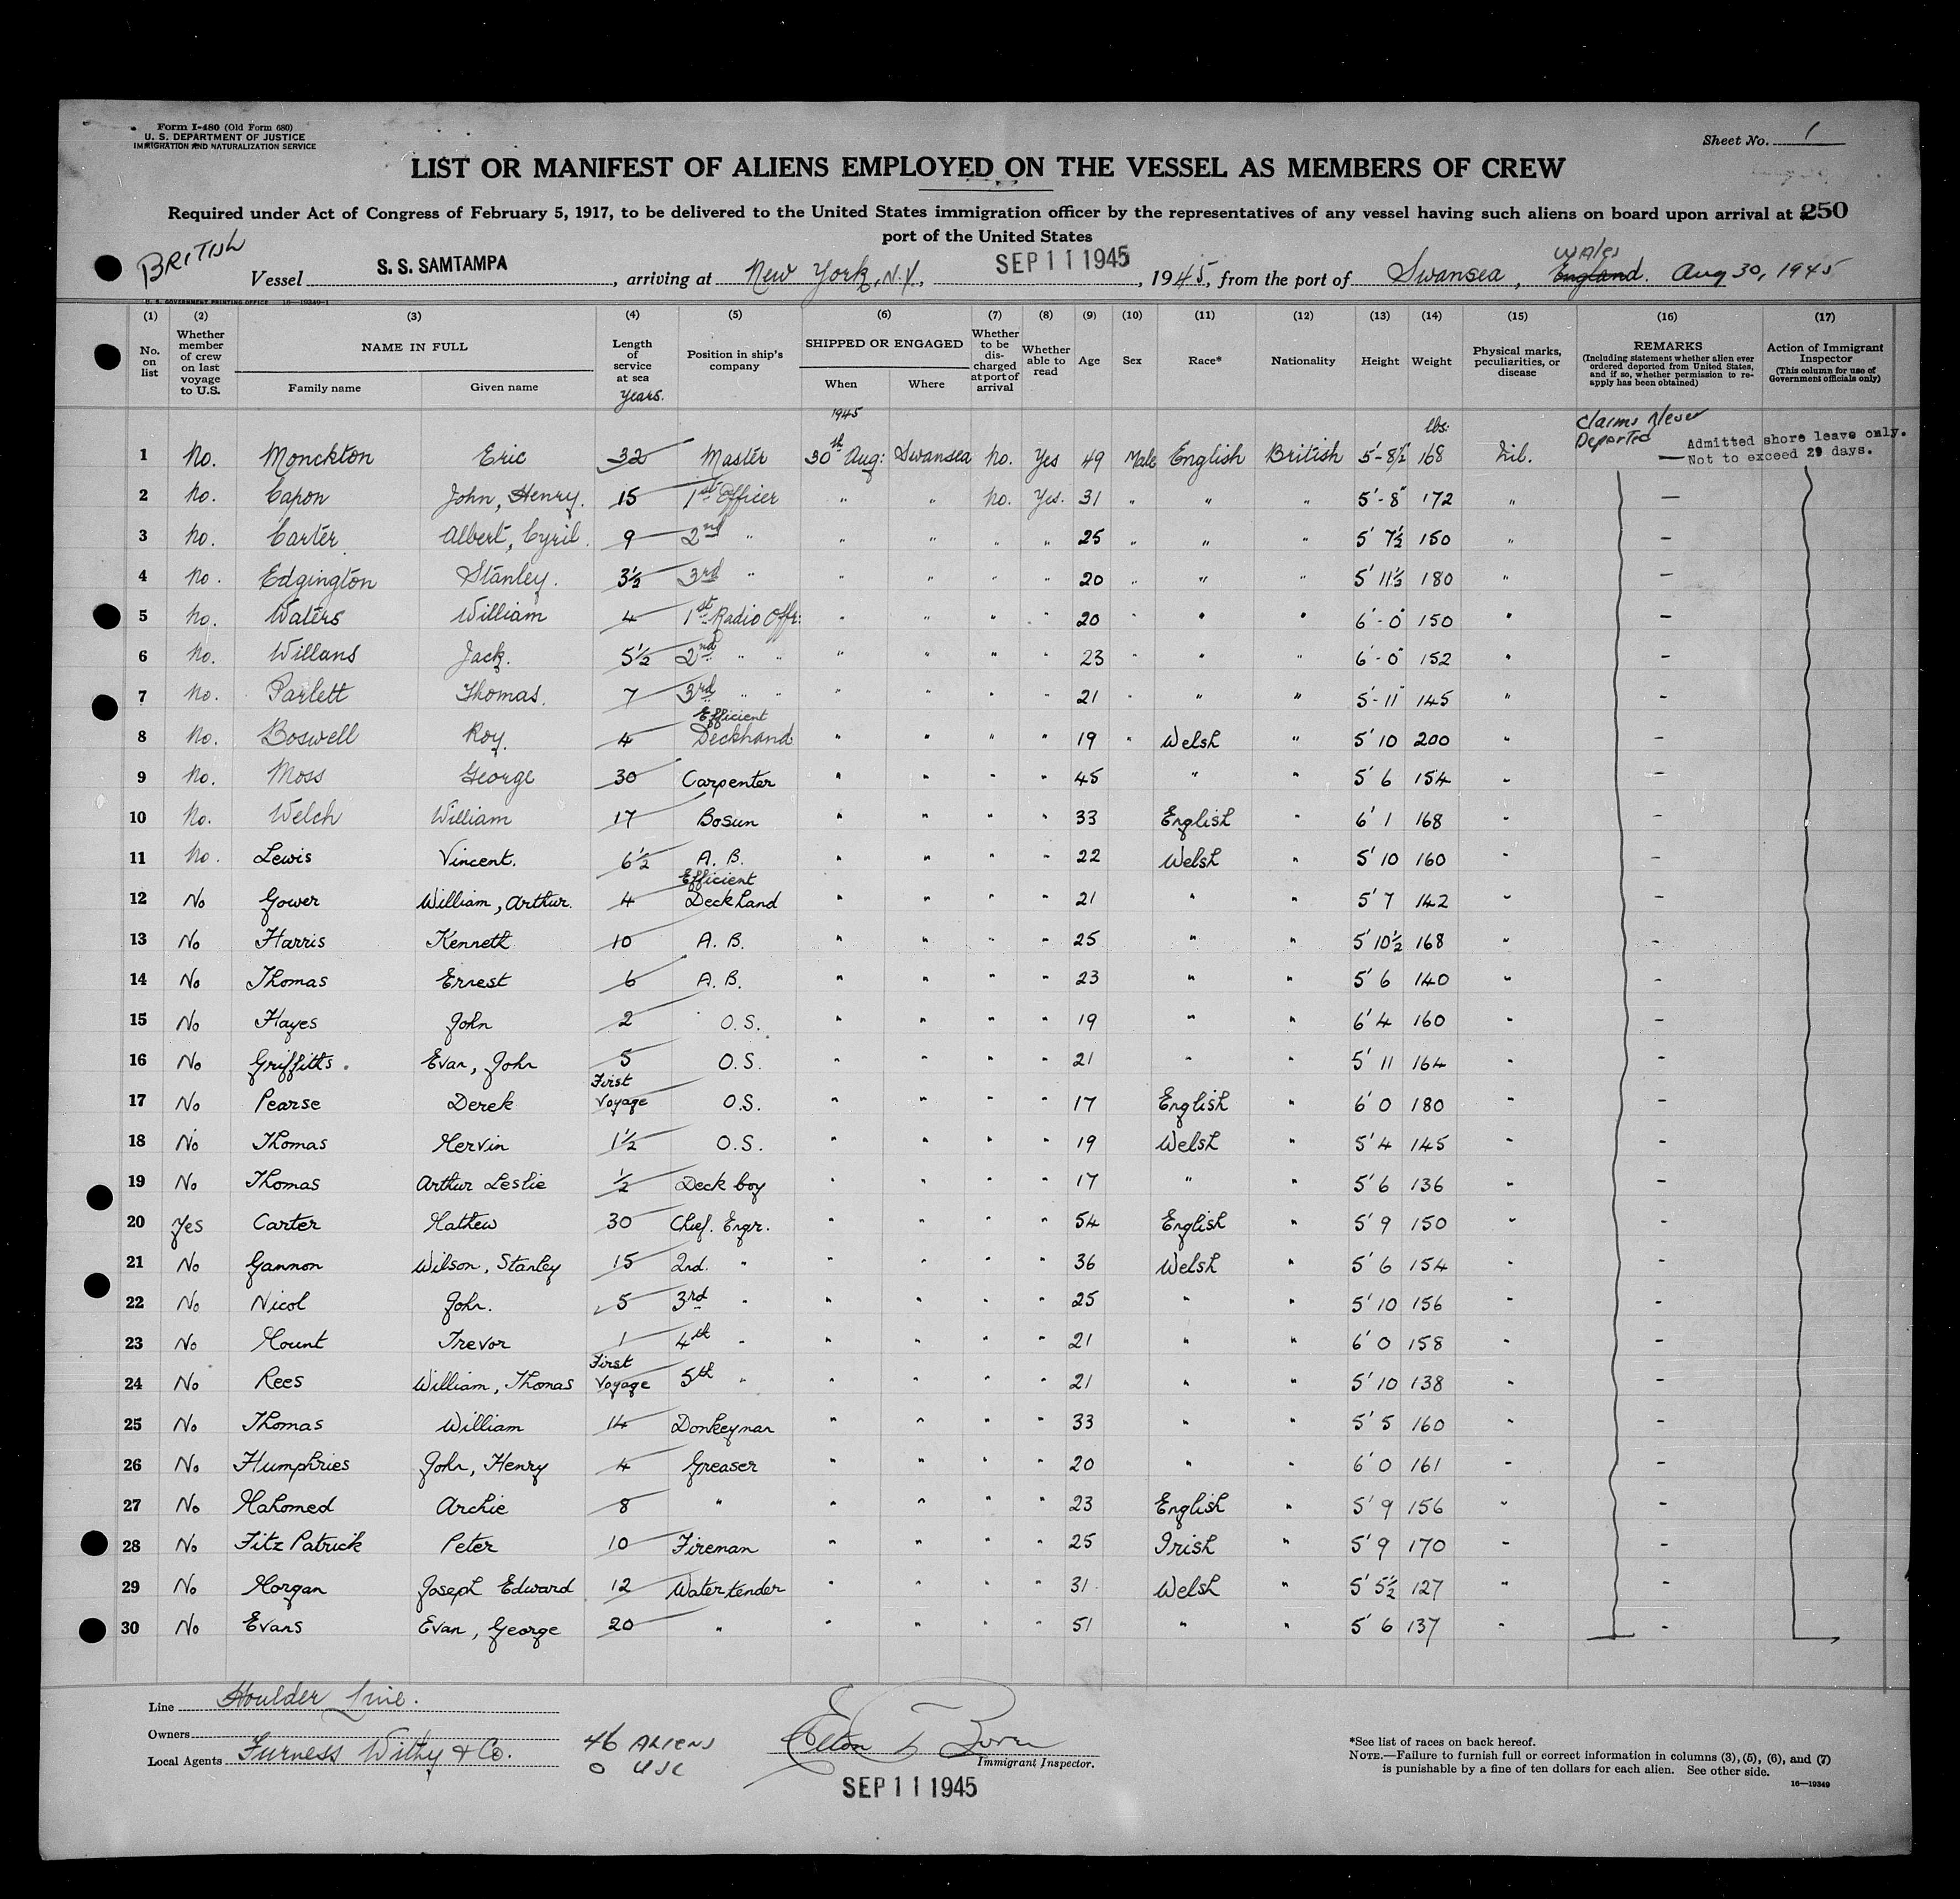 Form I-480 (Old Form 680)
U. S. DEPARTMENT OF JUSTICE
IMMIGRATION AND NATURALIZATION SERVICE
Sheet No. 1
LIST OR MANIFEST OF ALIENS EMPLOYED ON THE VESSEL AS MEMBERS OF CREW
Required under Act of Congress of February 5, 1917, to be delivered to the United States immigration officer by the representatives of any vessel having such aliens on board upon arrival at 250
port of the United States
BRITISH Vessel S. S. SAMTAMPA, arriving at New York, N.Y., SEP 11 1945, 1945, from the port of Swansea, England. Wales Aug 30, 1945
U. S. GOVERNMENT PRINTING OFFICE 16—19349-1
(1) (2) (3) (4) (5) (6) (7) (8) (9) (10) (11) (12) (13) (14) (15) (16) (17)
No. on list Whether member of crew on last voyage to U.S. NAME IN FULL Family name Given name Length of service at sea Years. Position in ship's company SHIPPED OR ENGAGED When Where Whether to be discharged at port of arrival Whether able to read Age Sex Race* Nationality Height Weight Physical marks, peculiarities, or disease REMARKS (Including statement whether alien ever ordered deported from United States, and if so, whether permission to reapply has been obtained) Action of Immigrant Inspector (This column for use of Government officials only)
1945 lbs. Claims Never Deported Admitted shore leave only. Not to exceed 29 days.
1 No. Monckton Eric 32 Master 30th Aug: Swansea No. Yes 49 Male English British 5'-8½ 168 Nil. —
2 No. Capon John, Henry. 15 1st Officer " " No. Yes. 31 " " " 5'-8" 172 " —
3 No. Carter Albert, Cyril. 9 2nd " " " " " 25 " " " 5' 7½ 150 " —
4 No. Edgington Stanley. 3½ 3rd " " " " " 20 " " " 5' 11½ 180 " —
5 No. Waters William 4 1st Radio Offr: " " " " 20 " " " 6'-0" 150 " —
6 No. Willans Jack. 5½ 2nd " " " " " " 23 " " " 6'-0" 152 " —
7 No. Parlett Thomas. 7 3rd " " " " " " 21 " " " 5'-11" 145 " —
8 No. Boswell Roy. 4 Efficient Deckhand " " " " 19 " Welsh " 5' 10 200 " —
9 No. Moss George 30 Carpenter " " " " 45 " " 5' 6 154 " —
10 No. Welch William 17 Bosun " " " " 33 English " 6' 1 168 " —
11 No. Lewis Vincent. 6½ A. B. " " " " 22 Welsh " 5' 10 160 " —
12 No Gower William, Arthur. 4 Efficient Deckhand " " " " 21 " " 5' 7 142 " —
13 No Harris Kenneth 10 A. B. " " " " 25 " " 5' 10½ 168 " —
14 No Thomas Ernest 6 A. B. " " " " 23 " " 5' 6 140 " —
15 No Hayes John 2 O.S. " " " " 19 " " 6' 4 160 " —
16 No Griffiths. Evan, John 5 O.S. " " " " 21 " " 5' 11 164 " —
17 No Pearse Derek First Voyage O.S. " " " " 17 English " 6' 0 180 " —
18 No Thomas Mervin 1½ O.S. " " " " 19 Welsh " 5' 4 145 " —
19 No Thomas Arthur Leslie ½ Deck boy " " " " 17 " " 5' 6 136 " —
20 Yes Carter Mathew 30 Chief. Engr. " " " " 54 English " 5' 9 150 " —
21 No Gammon Wilson, Stanley 15 2nd. " " " " " 36 Welsh " 5' 6 154 " —
22 No Nicol John. 5 3rd " " " " " 25 " " 5' 10 156 " —
23 No Mount Trevor 1 4th " " " " " 21 " " 6' 0 158 " —
24 No Rees William, Thomas First Voyage 5th " " " " " 21 " " 5' 10 138 " —
25 No Thomas William 14 Donkeyman " " " " 33 " " 5' 5 160 " —
26 No Humphries John, Henry 4 Greaser " " " " 20 " " 6' 0 161 " —
27 No Mahomed Archie 8 " " " " " 23 English " 5' 9 156 " —
28 No Fitz Patrick Peter 10 Fireman " " " " 25 Irish " 5' 9 170 " —
29 No Morgan Joseph Edward 12 Watertender " " " " 31 Welsh " 5' 5½ 127 " —
30 No Evans Evan, George 20 " " " " " 51 " " 5' 6 137 " —
Line Houlder Line.
Owners
Local Agents Furness Withy & Co.
46 ALIENS
0 USC
Immigrant Inspector.
SEP 11 1945
*See list of races on back hereof.
NOTE.—Failure to furnish full or correct information in columns (3), (5), (6), and (7)
is punishable by a fine of ten dollars for each alien. See other side.
16—19349